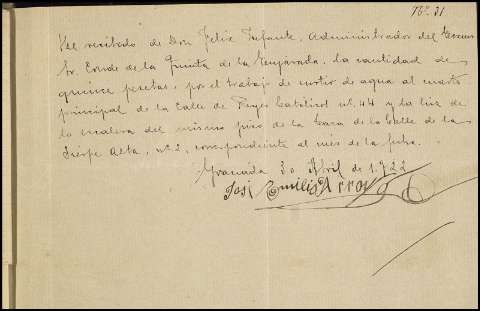 Nº. 31
He recibido de Don Felix Infante, Administrador del Excmo
Sr. Conde de la Quinta de la Enjarada, la cantidad de
quince pesetas, por el trabajo de surtir de agua al cuarto
principal de la Calle de Reyes Catolicos nº. 44 y la luz de
la escalera del mismo piso de la Casa de la Calle de la
Sierpe Alta, nº 2, correspondiente al mes de la fecha.
Granada 30 Abril de 1.922
José Emilio Arroyo